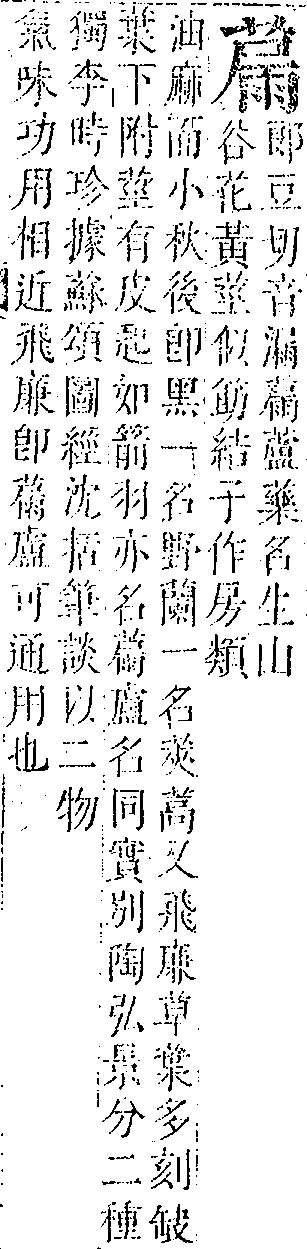 蔐郎豆切音漏蔐蘆藥名生山
谷花黃莖似筯結子作房類
油麻而小秋後卽黑一名野蘭一名莢蒿又飛廉草葉多刻缺
葉下附莖有皮起如箭羽亦名蔐蘆名同實別陶弘景分二種
獨李時珍據蘇頌圖經沈括筆談以二物
氣味功用相近飛廉卽蔐蘆可通用也